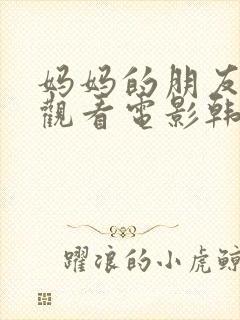 妈妈的朋友
觀看電影韩
躍浪的小虎鲸